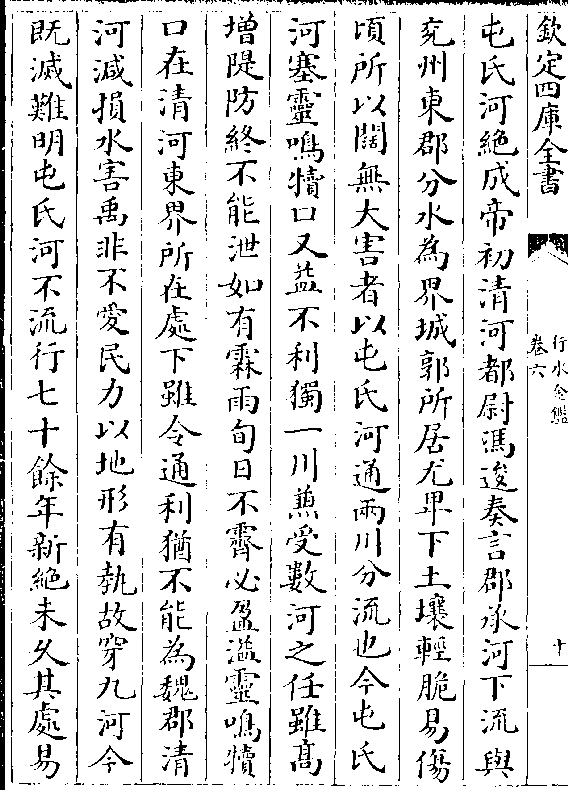 欽定四庫全書
行水金鑑
卷六
十
屯氏河絶成帝初清河都尉馮逡奏言郡承河下流與
兖州東郡分水為界城郭所居尤卑下土壤輕脆易傷
頃所以闊無大害者以屯氏河通兩川分流也今屯氏
河塞靈鳴犢口又益不利獨一川兼受數河之任雖髙
增隄防終不能泄如有霖雨旬日不霽必盈溢靈鳴犢
口在清河東界所在處下雖令通利猶不能為魏郡清
河減損水害禹非不愛民力以地形有埶故穿九河今
既滅難明屯氏河不流行七十餘年新絶未久其處易